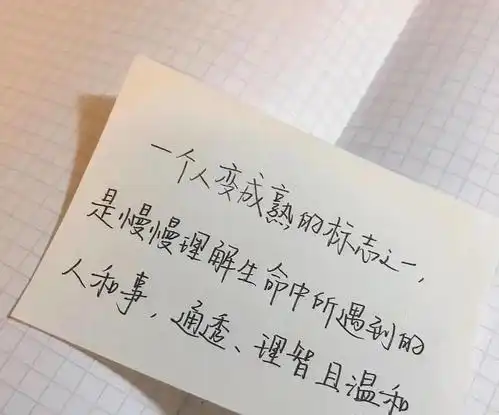 一个人变成熟的标志之一，
是慢慢理解生命中所遇到的
人和事，通透、理智且温和